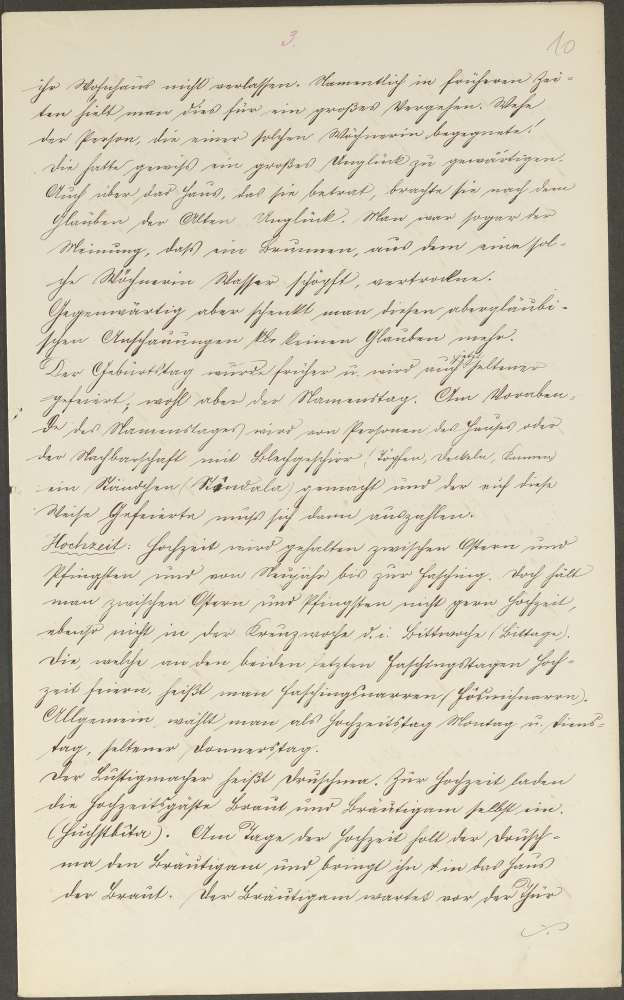 3. 10
ihr Wohnhaus nicht verlassen. Namentlich in früheren Zei-
ten hielt man dies für ein großes Vergehen. Wehe
der Person, die einer solchen Wöchnerin begegnete!
Die hatte gewiß ein großes Unglück zu gewärtigen.
Auch über das Haus, das sie betrat, brachte sie nach dem
Glauben der Alten Unglück. Man war sogar der
Meinung, daß ein Brunnen, aus dem eine sol-
che Wöchnerin Wasser schöpft, vertrockne.
Gegenwärtig aber schenkt man diesen abergläubi-
schen Anschauungen keinen Glauben mehr.
Der Geburtstag wurde früher u. wird auch jetzt seltener
gefeiert, wohl aber der Namenstag. Am Voraben-
de des Namenstages wird von Personen des Hauses oder
der Nachbarschaft mit Blechgeschirr (Töpfen, Deckeln, Kannen
ein Ständchen (Standala) gemacht und der auf diese
Weise Gefeierte muß sich dann auszahlen.
Hochzeit: Hochzeit wird gehalten zwischen Ostern und
Pfingsten und von Neujahr bis zur Fasching. Doch hält
man zwischen Ostern und Pfingsten nicht gern Hochzeit,
ebenso nicht in der Kreuzwoche d. i. Bittwoche (Bittage).
Die, welche an den beiden letzten Faschingstagen Hoch-
zeit feiern, heißt man Faschingsnarren
Allgemein wählt man als Hochzeitstag Montag u. Diens-
tag, seltener Donnerstag.
Der Lustigmacher heißt Druschma. Zur Hochzeit laden
die Hochzeitsgäste Braut und Bräutigam selbst ein.
Am Tage der Hochzeit holt der Drusch-
ma den Bräutigam und bringt ihn in das Haus
der Braut. Der Bräutigam wartet vor der Thür